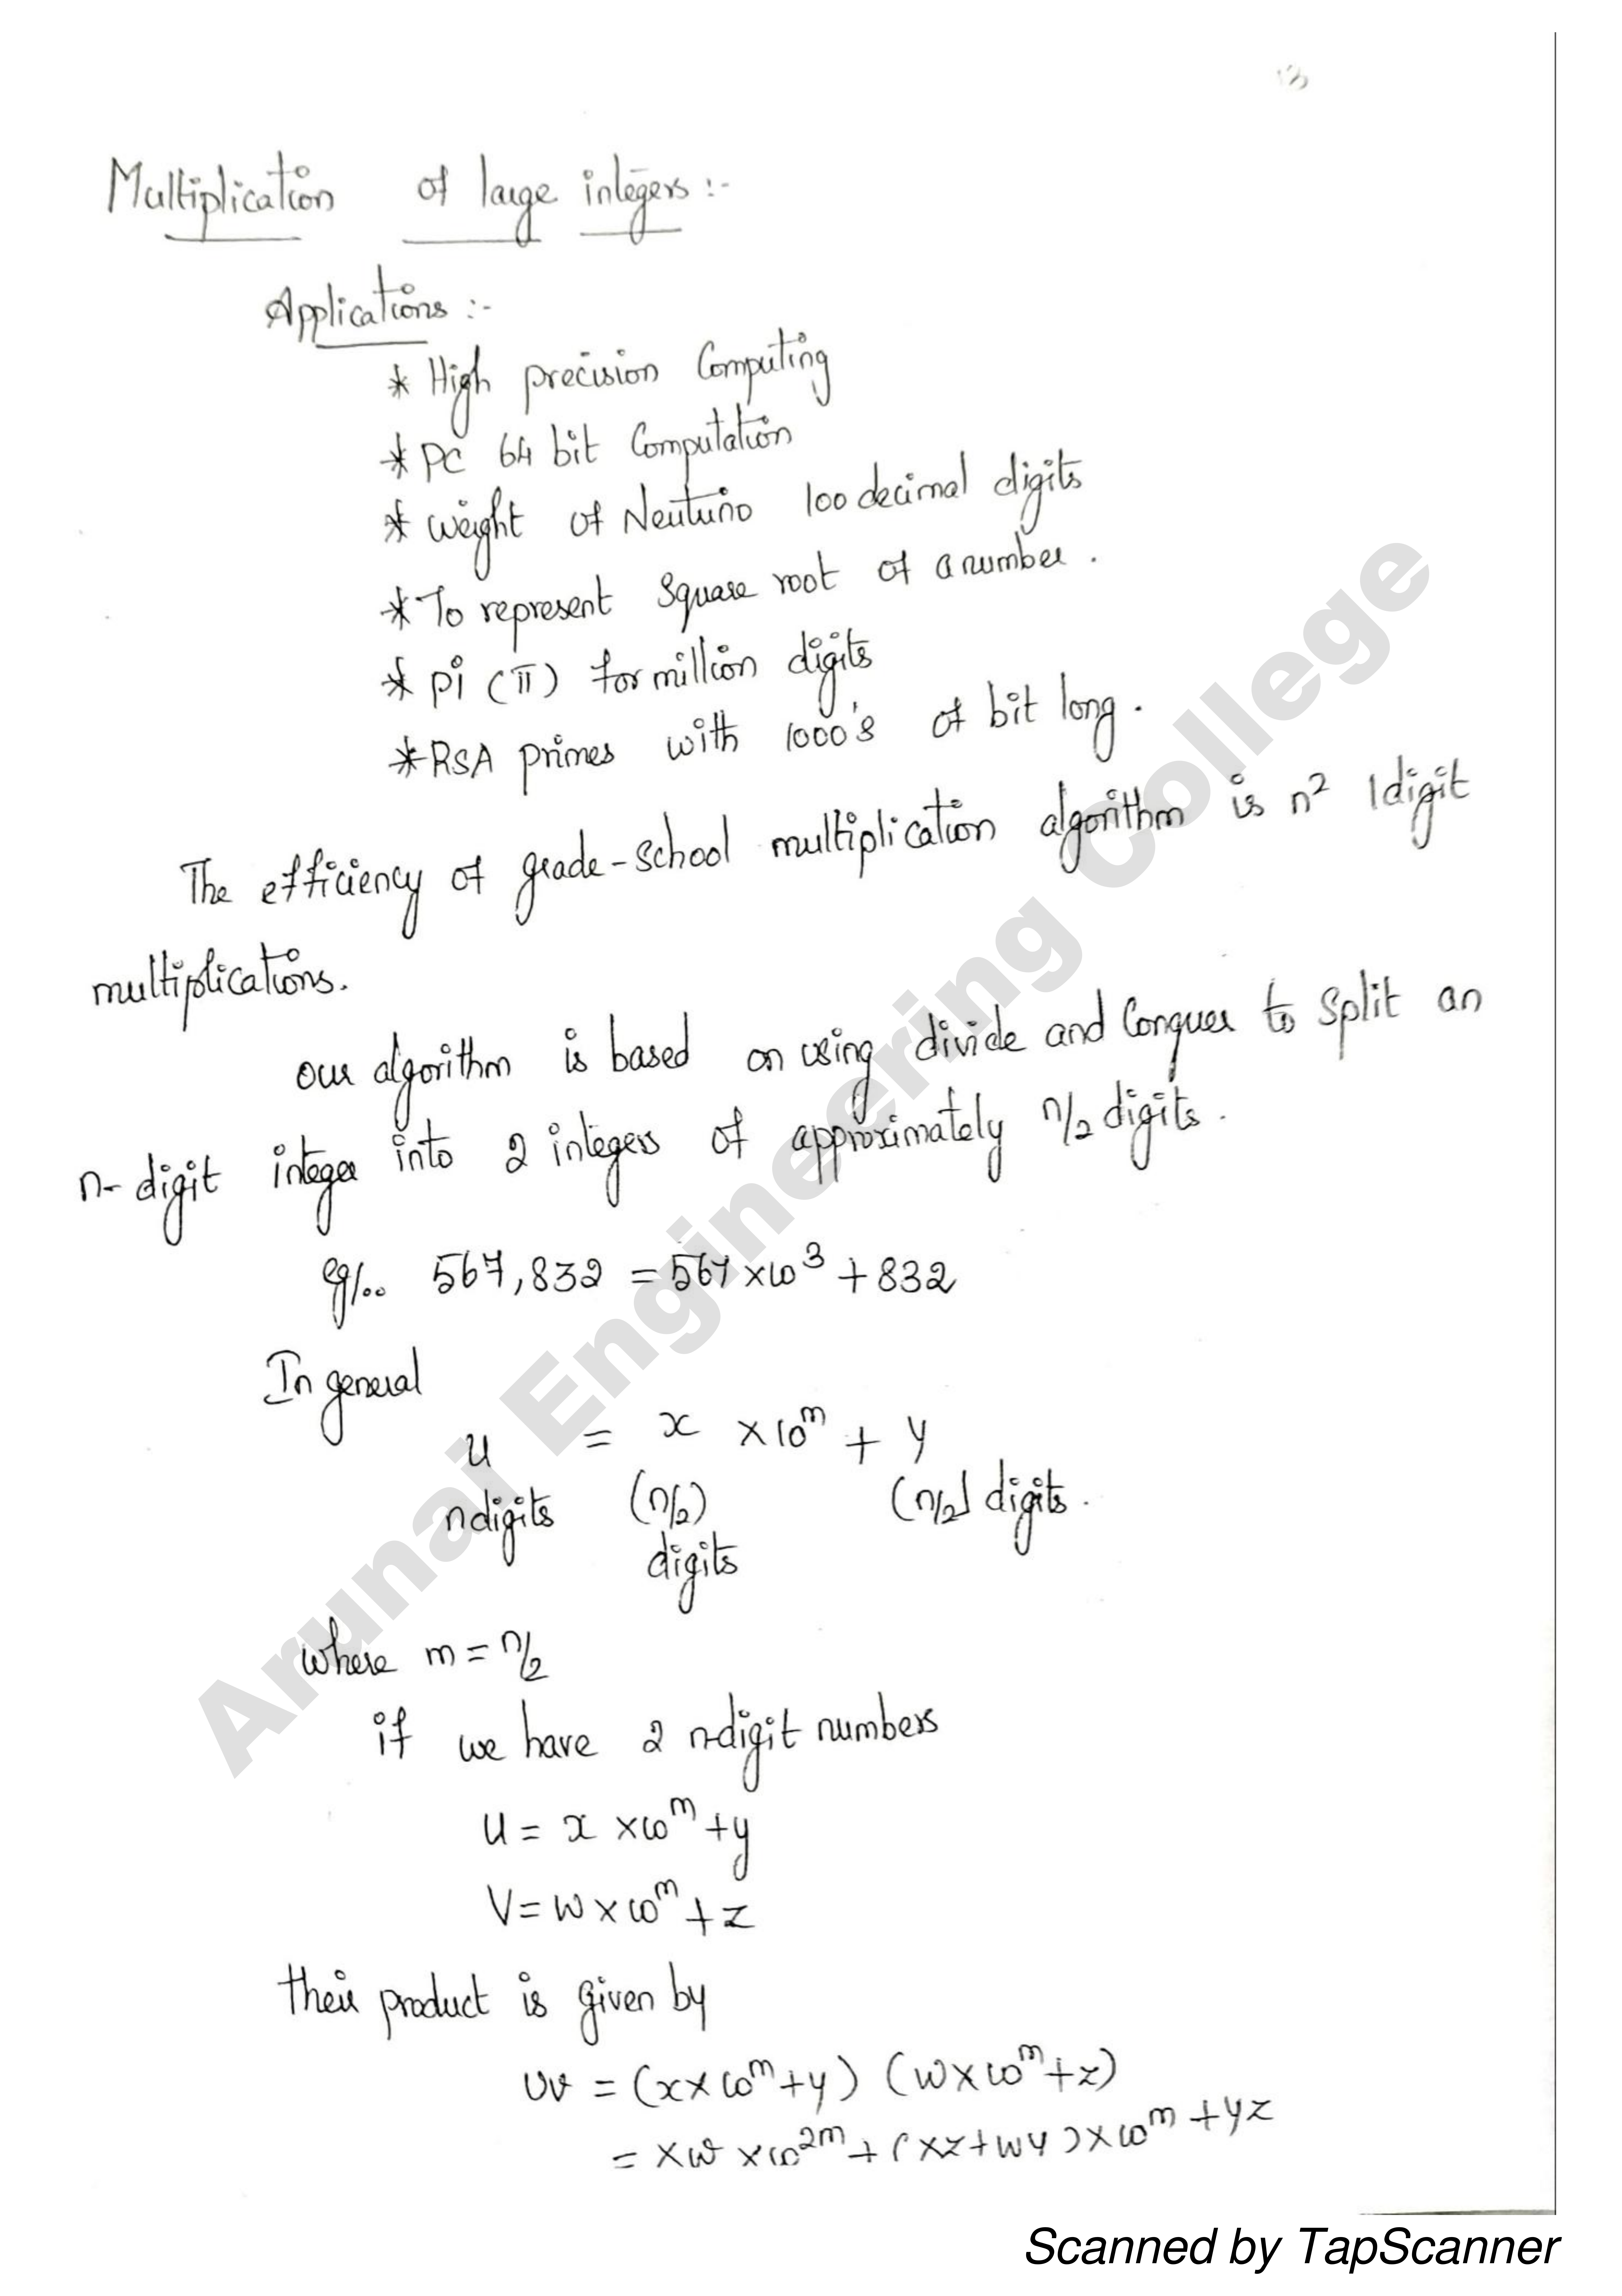 13
Multiplication of large integers :-
Applications :-
* High precision Computing
* PC 64 bit Computation
* weight of Neutrino 100 decimal digits
* To represent Square root of a number .
* pi (π) for million digits
* RSA primes with 1000's of bit long .
The efficiency of grade-school multiplication algorithm is n² 1 digit
multiplications.
our algorithm is based on using divide and Conquer to split an
n-digit integer into 2 integers of approximately n/2 digits .
eg/.. 567,832 = 567 x 10³ + 832
In general
u = x x 10^m + y
n digits (n/2) (n/2] digits .
digits
where m = n/2
if we have 2 n-digit numbers
U = x x 10^m + y
V = W x 10^m + z
their product is given by
UV = (x x 10^m + y) (W x 10^m + z)
= xw x 10^2m + (xz + wy) x 10^m + yz
Arunai Engineering College
Scanned by TapScanner